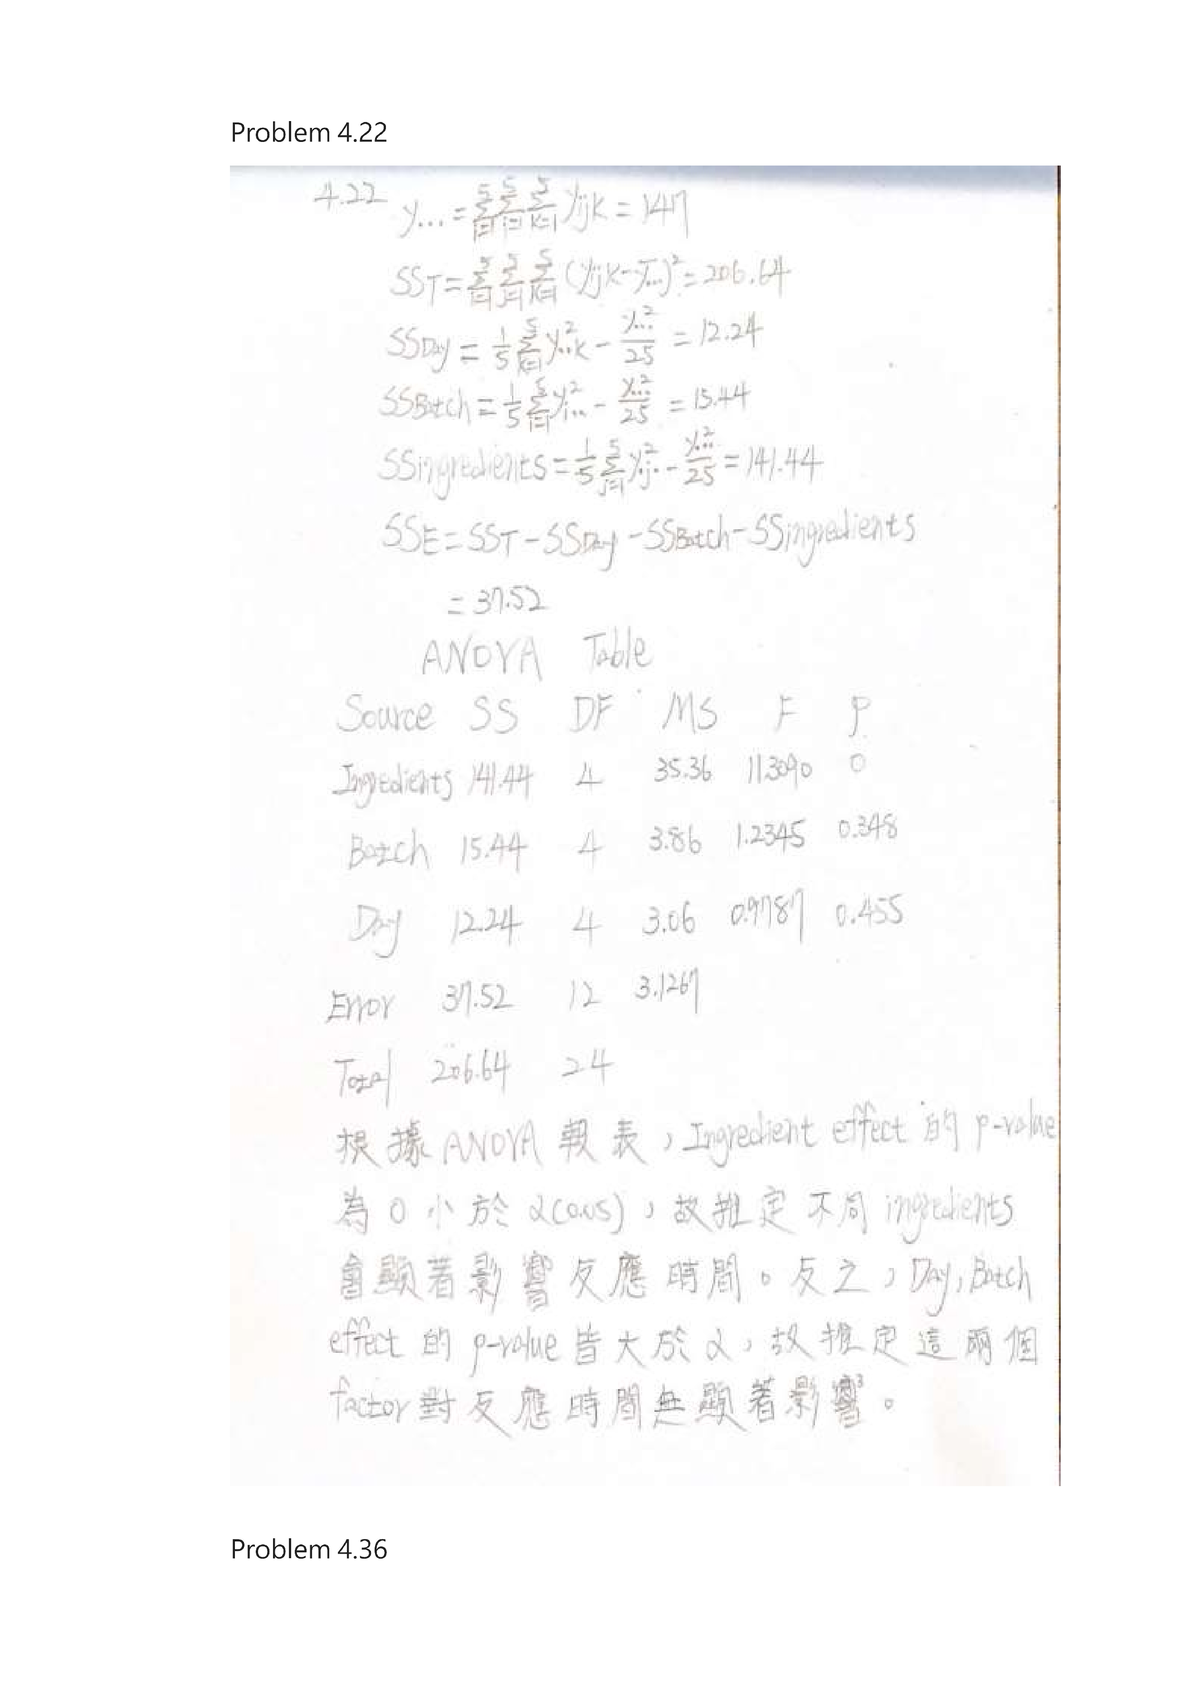 Problem 4.22
4.22 y... = Σ_{i=1}^{5} Σ_{j=1}^{5} Σ_{k=1}^{5} yijk = 147
SST = Σ_{i=1}^{5} Σ_{j=1}^{5} Σ_{k=1}^{5} (yijk - ȳ...)² = 206.64
SSDay = 1/5 Σ_{k=1}^{5} y..k² - y...²/25 = 12.24
SSBatch = 1/5 Σ_{i=1}^{5} yi..² - y...²/25 = 15.44
SSingredients = 1/5 Σ_{j=1}^{5} y.j.² - y...²/25 = 141.44
SSE = SST - SSDay - SSBatch - SSingredients
= 37.52
ANOVA Table
Source SS DF MS F P
Ingredients 141.44 4 35.36 11.3090 0
Batch 15.44 4 3.86 1.2345 0.348
Day 12.24 4 3.06 0.9787 0.455
Error 37.52 12 3.1267
Total 206.64 24
根據ANOVA報表,Ingredient effect的p-value
為0小於α(0.05),故推定不同ingredients
會顯著影響反應時間。反之,Day,Batch
effect的p-value皆大於α,故推定這兩個
factor對反應時間無顯著影響。
Problem 4.36